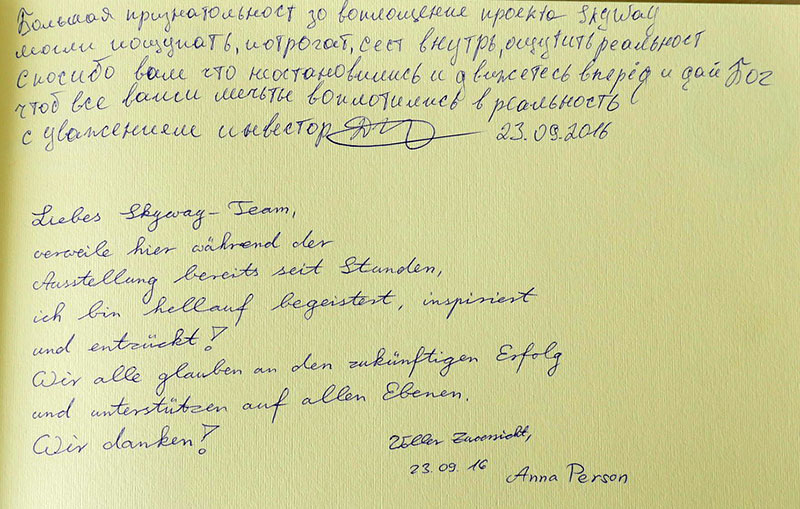 Большая признательност зо воплощение проекта SkyWay
могли пощупать, потрогат, сест внутрь, ощутить реальност
спосибо вам что неостановились и движетесь вперёд и дай Бог
чтоб все ваши мечты воплотились в реальность
с уважением инвестор 23.09.2016
Liebes Skyway-Team,
verweile hier während der
Ausstellung bereits seit Stunden,
ich bin hellauf begeistert, inspiriert
und entzückt!
Wir alle glauben an den zukünftigen Erfolg
und unterstützen auf allen Ebenen.
Wir danken!
Voller Zuversicht,
23.09.16 Anna Person